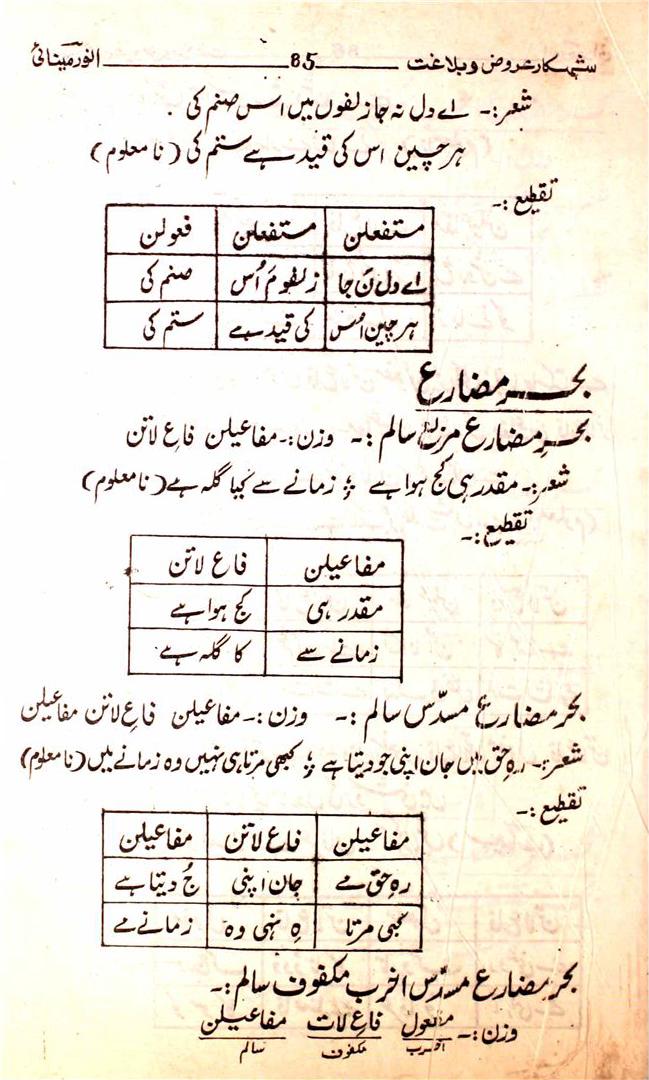 شہکار عروض و بلاغت ـــــ 85 ـــــ انور مینائی
شعر:۔ اے دل نہ جا زلفوں میں اس صنم کی .
ہر چین اس کی قید ہے ستم کی (نا معلوم)
تقطیع:۔
مستفعلن مستفعلن فعولن
اے دل نَ جا زلفوم اُس صنم کی
ہر چین اُس کی قید ہے ستم کی
بحر مضارع
بحرِ مضارع مربع سالم :۔ وزن:۔ مفاعیلن فاعِ لاتن
شعر:۔ مقدر ہی کج ہوا ہے ؛ زمانے سے کیا گلہ ہے (نا معلوم)
تقطیع:۔
مفاعیلن فاع لاتن
مقدر ہی کج ہوا ہے
زمانے سے کا گلہ ہے
بحر مضارع مسدّس سالم :۔ وزن:۔ مفاعیلن فاعِ لاتن مفاعیلن
شعر:۔ رہِ حق میں جان اپنی جو دیتا ہے ؛ کبھی مرتا ہی نہیں وہ زمانے میں (نا معلوم)
تقطیع:۔
مفاعیلن فاع لاتن مفاعیلن
رہِ حق مے جان اپنی جُ دیتا ہے
کبی مرتا ہِ نہی وہ زمانے مے
بحر مضارع مسدّس اخرب مکفوف سالم:۔
وزن:۔ مفعول فاعِ لات مفاعیلن
اخرب مکفوف سالم